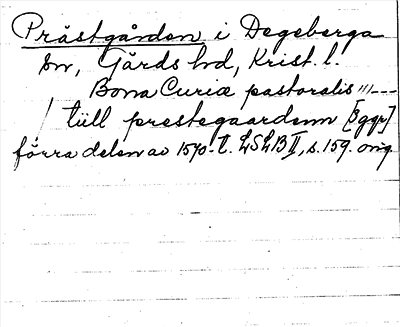 Prästgården i Degeberga
sn, Gärds hd, Krist. l.
Bona Curiæ pastoralis ///---
/ tiill prestegaardenn [3 ggr]
förra delen av 1570-t. LSLB II, s. 159. orig